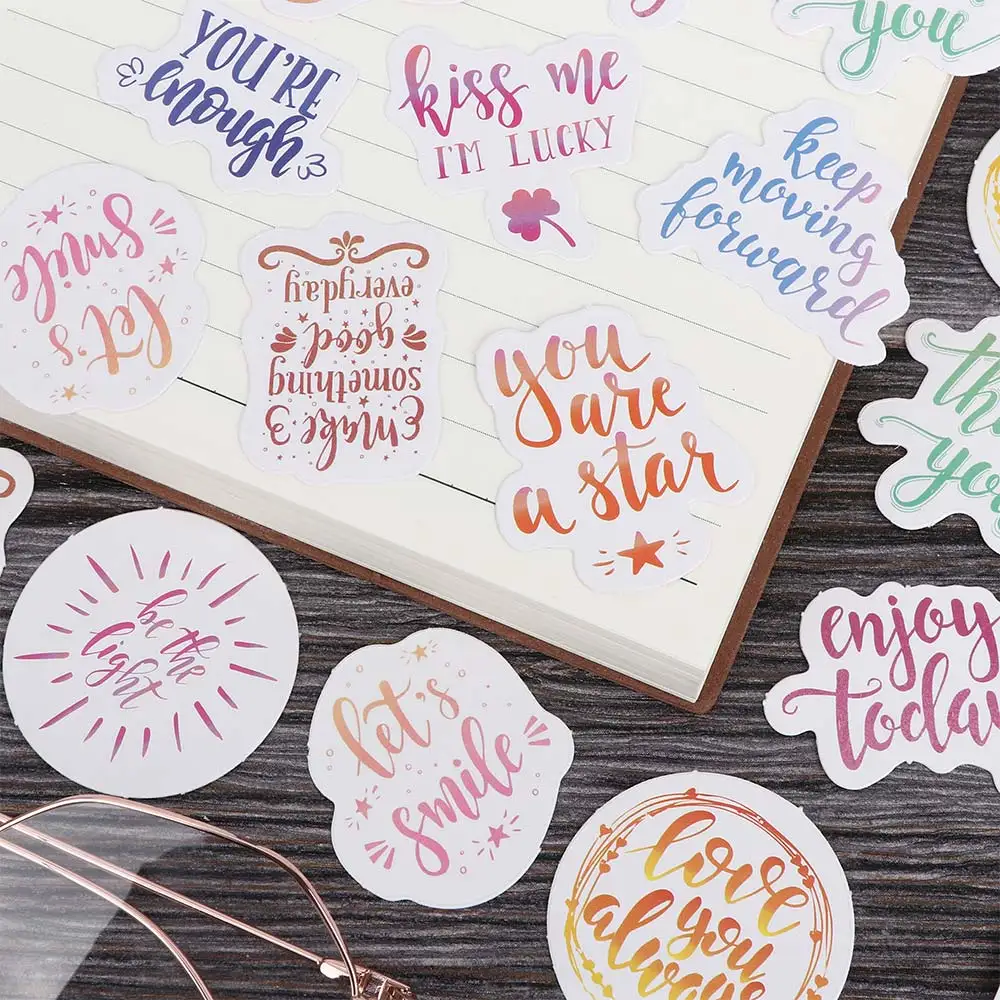 you
YOU'RE
enough
kiss me
I'M LUCKY
keep
moving
forward
let's
smile
make
something
good
everyday
you
are
a star
you
be the
light
let's
smile
enjoy
today
love
you
always